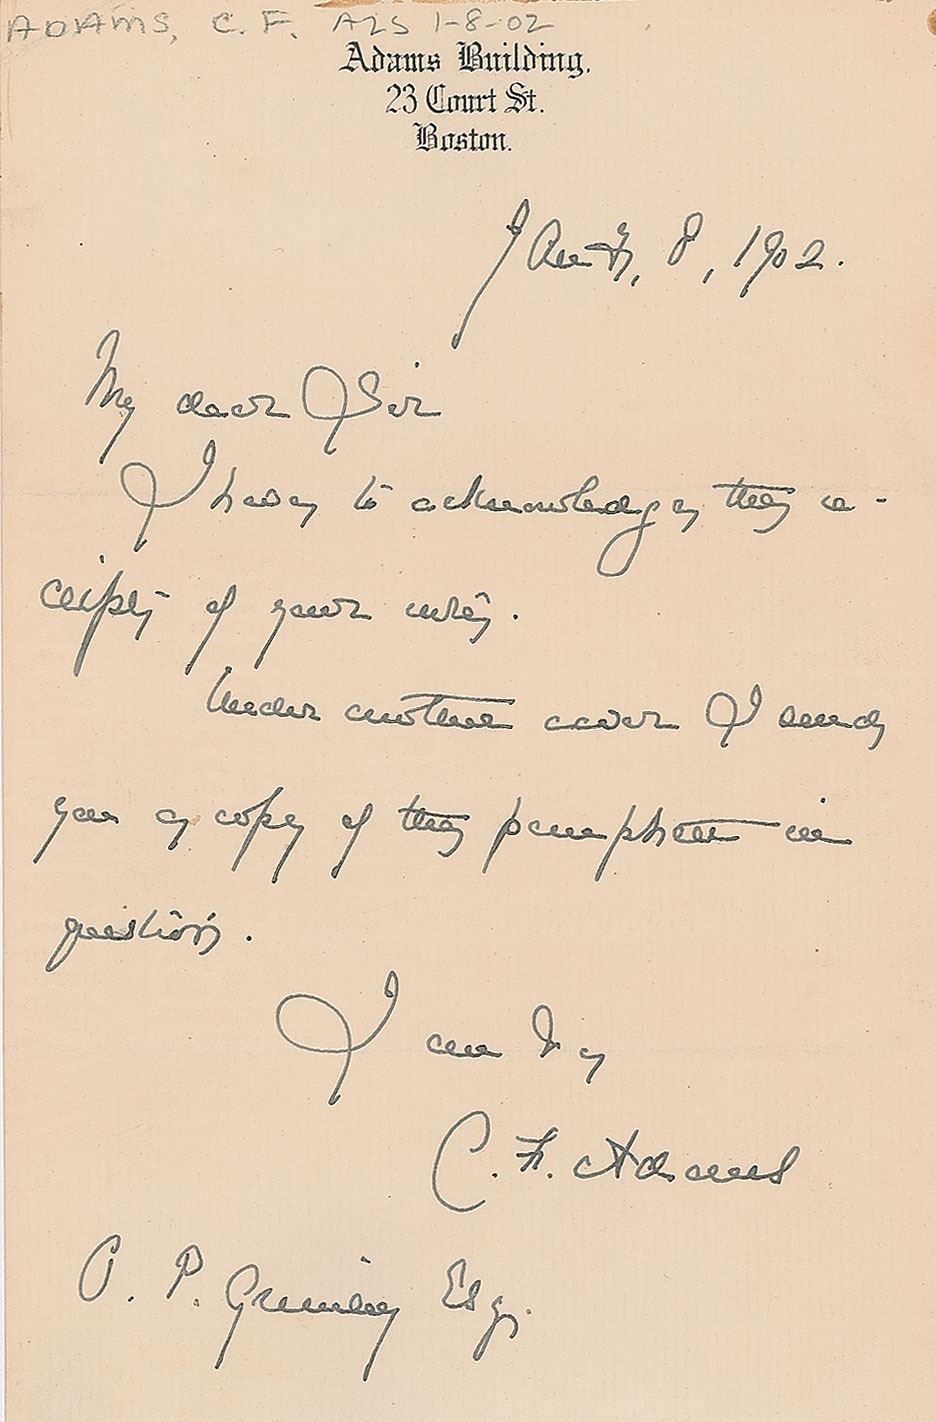 ADAMS, C. F. ALS 1-8-02
Adams Building,
23 Court St.
Boston.
8, 1902.
My dear Sir
I have to acknowledge the re-
ceipt of your note.
Under another cover I send
you a copy of the pamphlet in
question.
I am &c
C. F. Adams
P. Esq.